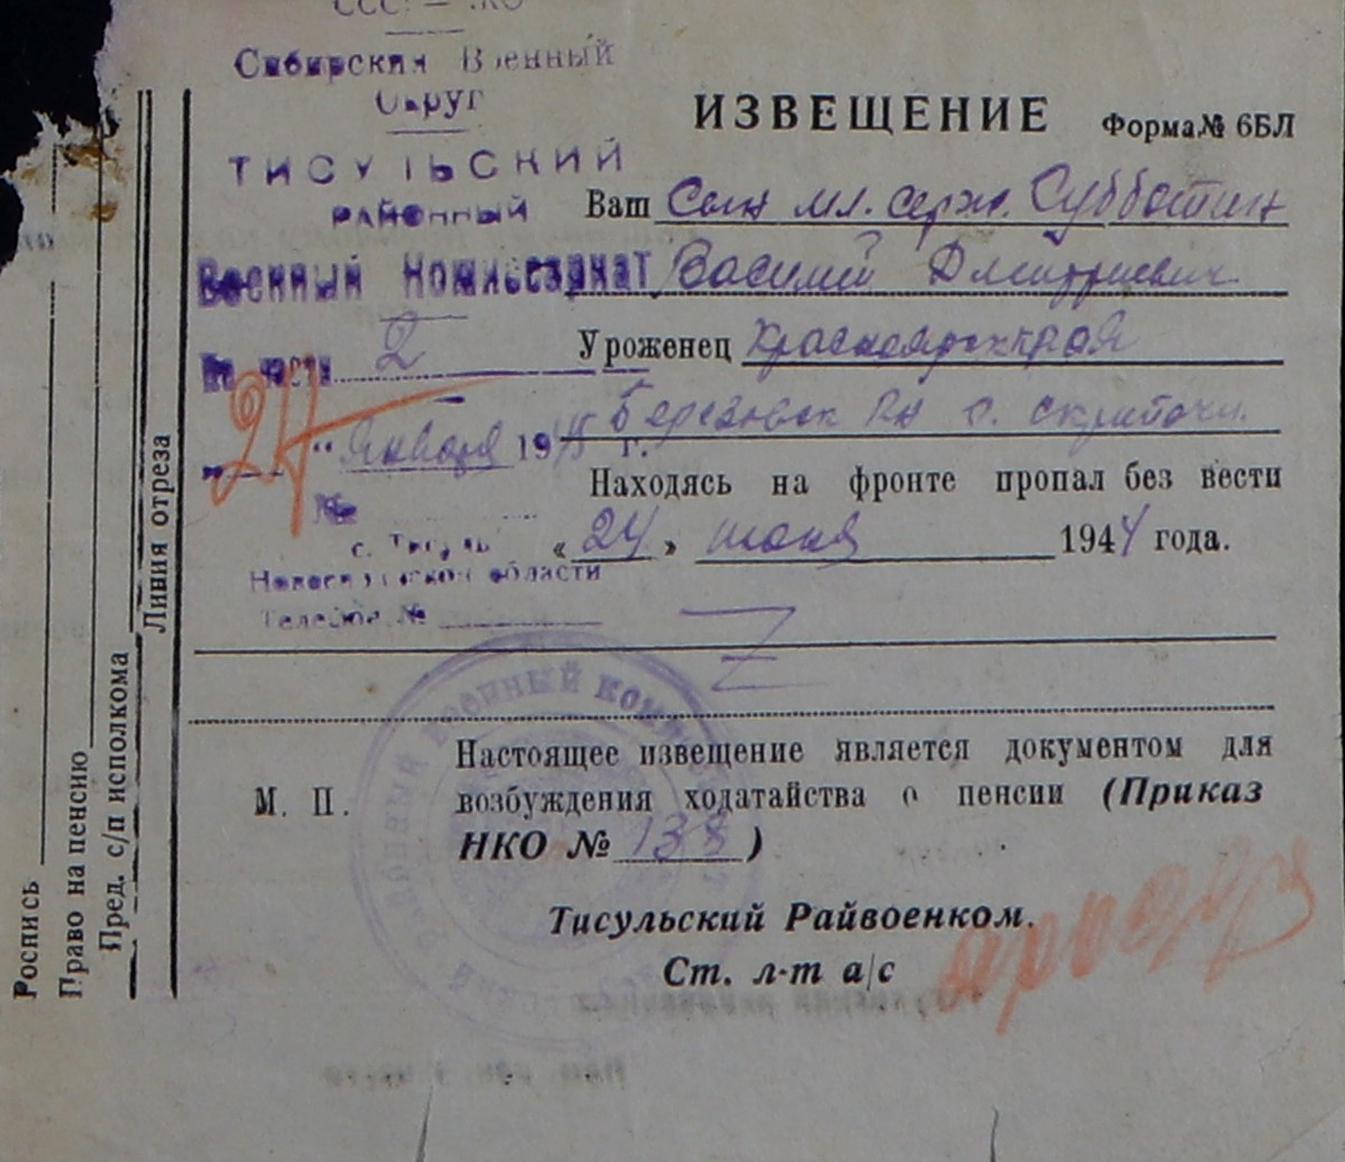 Сибирский Военный
Округ
ТИСУЛЬСКИЙ
РАЙОННЫЙ
Военный Комиссариат
По части 2
24 " января 1945 г.
№
с. Тисуль
Новосибирской области
Телефон №
ИЗВЕЩЕНИЕ Форма № 6БЛ
Ваш Сын мл. серж. Субботин
Василий Дмитриевич
Уроженец Красноярск края
Березовск РН с.
Находясь на фронте пропал без вести
« 24 » июня 1944 года.
Настоящее извещение является документом для
возбуждения ходатайства о пенсии (Приказ
НКО № 138 )
М. П.
Тисульский Райвоенком.
Ст. л-т а/с
Линия отреза
Пред. с/п исполкома
Право на пенсию
Роспись